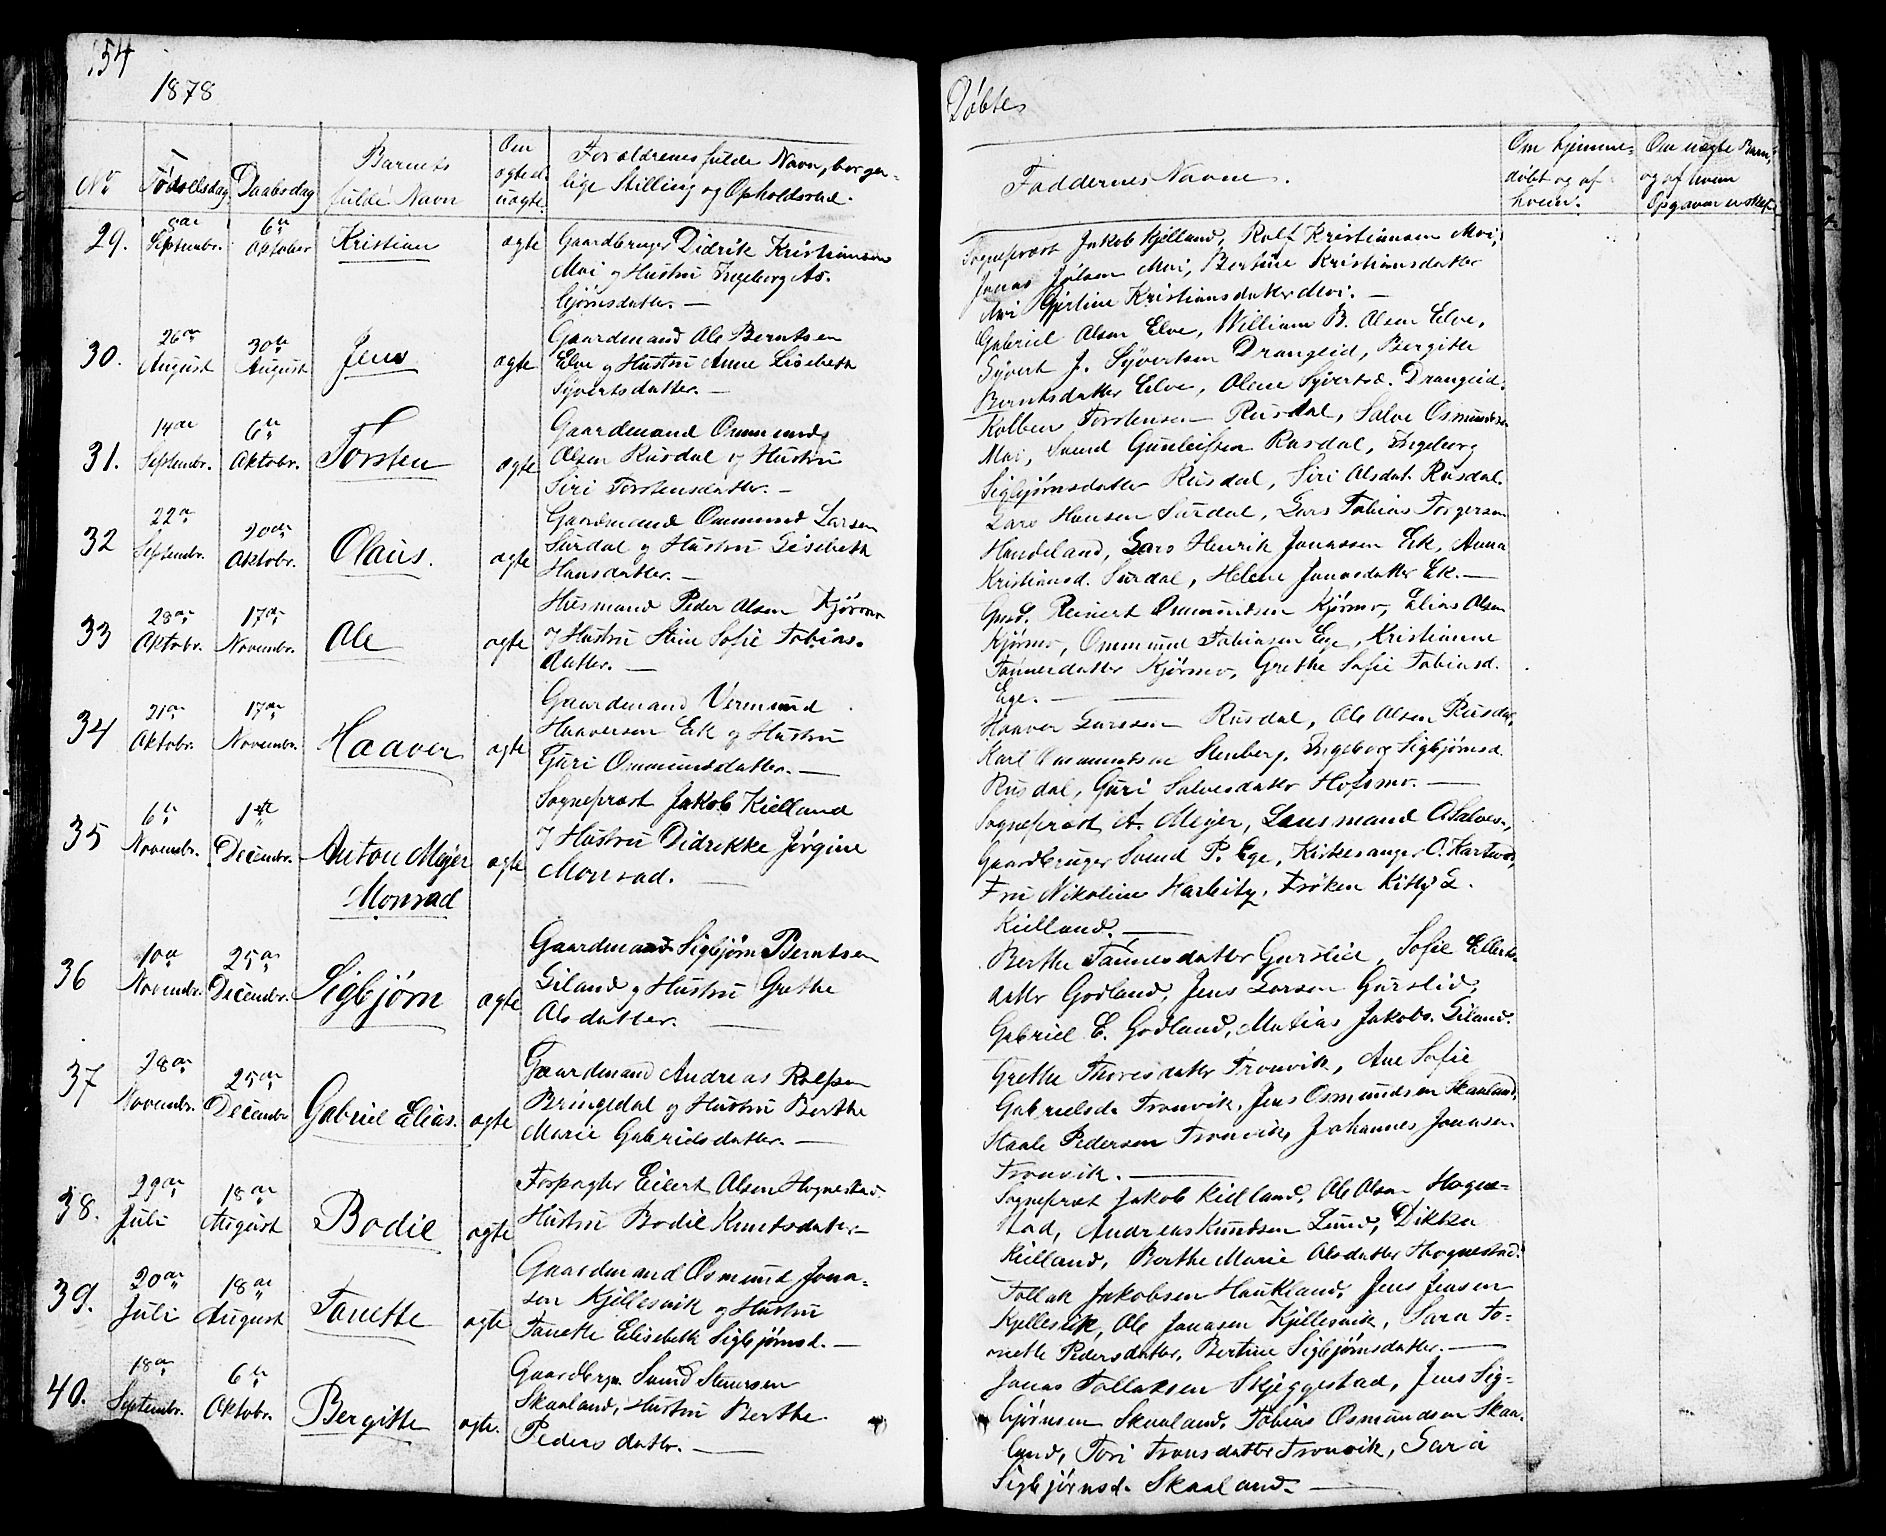 154
1878
Døbte
No
Fødselsdag
Daabsdag
Barnets
fulde Navn
Om
ægte el.
uægte.
Forældrenes fulde Navn, borger-
lige Stilling og Opholdssted.
Faddernes Navne.
Om hjemme-
døbt og af
hvem.
Om uægte Barn,
og af hvem
Opgaven er skeet
29.
Septembr.
6te
Oktober
Kristian
ægte
Gaardbruger Didrik Kristiansen
Moi og Hustru Ingeborg As-
bjørnsdatter. —
Sogneprest Jakob Kjelland, Rolf Kristiansen Moi,
Jonas Moi, Bertine Kristiansdatter
Moi Gjertine Kristiansdatter Moi. —
30.
26de
August
30te
August
Jens
ægte
Gaardmand Ole Berntsen
Elve og Hustru Anne Lisebeth
Syvertsdatter. —
Gabriel Olsen Elve, William B. Olsen Elve,
Syvert J. Syvertsen Drangeid, Bergitte
Berntsdatter Elve, Olene Syvertsd. Drangeid.
31.
14de
Septembr.
6te
Oktobr.
Torsten
ægte
Gaardmand Ommund
Olsen Rusdal og Hustru
Siri Torstensdatter. —
Kolben Torstensen Rusdal, Salve Osmundsen
Moi, Svend Gunleifsen Rusdal, Ingeborg
Sigbjørnsdatter Rusdal, Siri Olsdat. Rusdal.
32
22de
Septembr.
20de
Oktobr.
Olaus.
ægte
Gaardmand Ommund Larsen
Surdal og Hustru Lisebeth
Hansdatter. —
Lars Hansen Surdal, Lars Tobias Torgersen
Handeland, Lars Henrik Jonassen Eik, Anna
Kristiansd. Surdal, Helene Jonasdatter Ek. —
33
28de
Oktobr.
17de
Novembr.
Ole
ægte
Husmand Peder Olsen Kjørmo
og Hustru Stine Sofie Tobias-
datter. —
Gmd. Reinert Ommundsen Kjørmo, Elias Olsen
Kjørmo, Ommund Tobiasen Ege, Kristianne
Tønnesdatter Kjørmo, Grethe Sofie Tobiasd.
Ege. —
34
21de
Oktobr.
17de
Novembr.
Haaver
ægte
Gaardmand Vermund
Haaversen Eik og Hustru
Guri Ommundsdatter. —
Haaver Larssen Rusdal, Ole Olsen Rusdal,
Karl Ommundsen Stenberg, Ingeborg Sigbjørnsd.
Rusdal, Guri Salvesdatter Hofsmo. —
35
6te
Novembr.
1ste
Decembr.
Anton Mejer
Monrad
ægte
Sogneprest Jakob Kielland
og Hustru Didrikke Jørgine
Monrad. —
Sogneprest A. Meijer, Lensmand O. Salvesen,
Gaardbruger Svend P. Ege, Kirkesanger O. Hartvedt,
Fru Nikoline Harbitz, Frøken Kitty L.
Kielland. —
36
10de
Novembr.
25de
Decembr.
Sigbjørn
ægte
Gaardmand Sigbjørn Berntsen
Eiland og Hustru Grethe
Olsdatter. —
Berthe Tønnesdatter Gurslie, Sofie Ellerts-
datter Godland, Jens Larsen Gurslid,
Gabriel E. Godland, Matias Jakobs. Eiland.
37
28de
Novembr.
25de
Decembr
Gabriel Elias.
ægte
Gaardmand Andreas Rolfsen
Bringedal og Hustru Berthe
Marie Gabrielsdatter. —
Grethe Thoresdatter Tronvik, Ane Sofie
Gabrielsd. Tronvik, Jens Osmundsen Skaaland,
Staale Pedersen Tronvik, Johannes Jonasen
Tronvik. —
38.
29de
Juli
18de
August
Bodie
ægte
Forpagter Eilert Olsen Hognestad
Hustru Bodil Knutsdatr. —
Sogneprest Jakob Kielland, Ole Olsen Hogne-
stad, Andreas Knudsen Lund, Dikka
Kielland, Berthe Marie Olsdatter Hognestad.
39.
20de
Juli
18de
August
Tanette
ægte
Gaardmand Osmund Jona-
sen Kjellesvik og Hustru
Tanette Elisebeth Sigbjørnsd. —
Tollak Jakobsen Haukland, Jens Jensen
Kjellesvik, Ole Jonasen Kjellesvik, Sara To-
nette Pedersdatter, Bertine Sigbjørnsdatter. —
40.
18de
Septembr.
6te
Oktobr.
Bergitte
ægte.
Gaardbrgr. Svend
Skaaland, Hustru Berthe
Pedersdatter. —
Jonas Tollaksen Skjeggestad, Jens Sig-
bjørnsen Skaaland, Tobias Osmundsen Skaa-
land, Tori Tronsdatter Tronvik, Sara
Sigbjørnsd. Skaaland. —